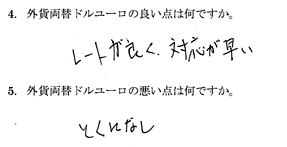 4. 外貨両替ドルユーロの良い点は何ですか。
レートが良く、対応が早い
5. 外貨両替ドルユーロの悪い点は何ですか。
とくになし